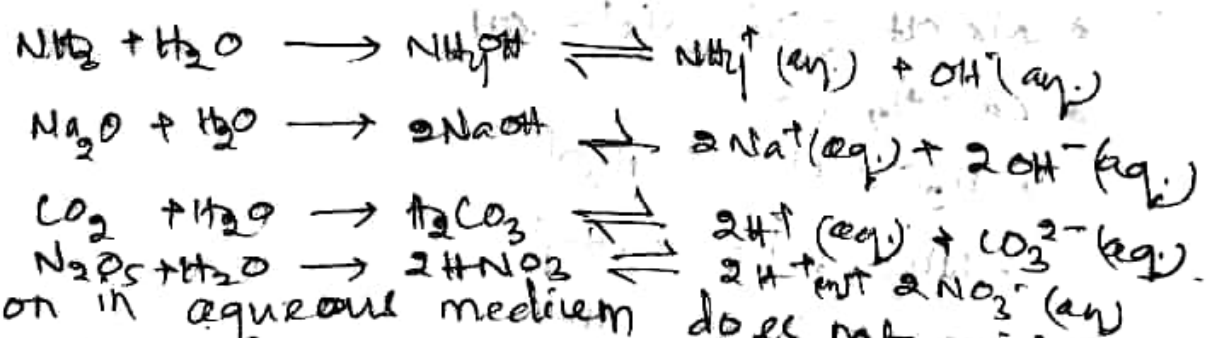 NH₃ + H₂O ⟶ NH₄OH ⇌ NH₄⁺ (aq.) + OH⁻ (aq.)
Na₂O + H₂O ⟶ 2NaOH ⇌ 2Na⁺ (aq.) + 2OH⁻ (aq.)
CO₂ + H₂O ⟶ H₂CO₃ ⇌ 2H⁺ (aq.) + CO₃²⁻ (aq.)
N₂O₅ + H₂O ⟶ 2HNO₃ ⇌ 2H⁺ + 2NO₃⁻ (aq)
on in aqueous medium does not